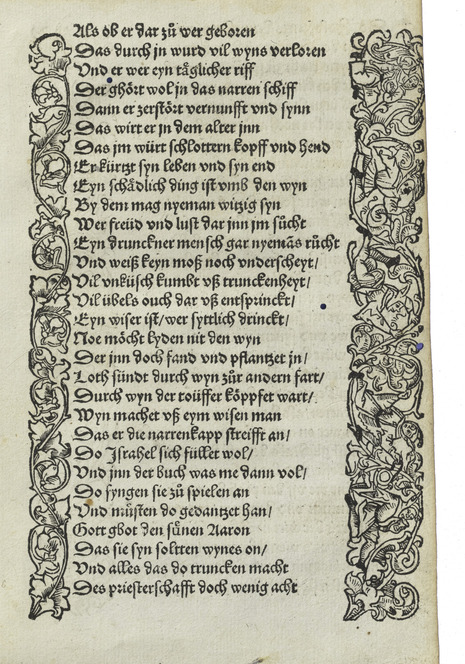 Als ob er dar zuͦ wer geboren
Das durch jn wurd vil wyns verloren
Vnd er wer eyn täglicher riff
Der ghört wol jn das narren schiff
Dann er zerstört vernunfft vnd synn
Das wirt er jn dem alter jnn
Das jm würt schlottern kopff vnd hend
Er kürtzt syn leben vnd syn end
Eyn schädlich ding ist vmb den wyn
By dem mag nyeman witzig syn
Wer freüd vnd lust dar jnn jm suͦcht
Eyn drunckner mensch gar nyemãs ruͦcht
Vnd weiß keyn moß noch vnderscheyt/
Vil vnküsch kumbt vß trunckenheyt/
Vil übels ouch dar vß entsprinckt/
Eyn wiser ist/wer syttlich drinckt/
Noe möcht lyden nit den wyn
Der jnn doch fand vnd pflantzet jn/
Loth sündt durch wyn zuͦr andern fart/
Durch wyn der töüffer köppfet wart/
Wyn machet vß eym wisen man
Das er die narrenkapp streifft an/
Do Jsrahel sich füllet wol/
Vnd jnn der buch was me dann vol/
Do fyngen sie zuͦ spielen an
Vnd müsten do gedantzet han/
Gott gbot den sünen Aaron
Das sie syn soltten wynes on/
Vnd alles das do truncken macht
Des priesterschafft doch wenig acht